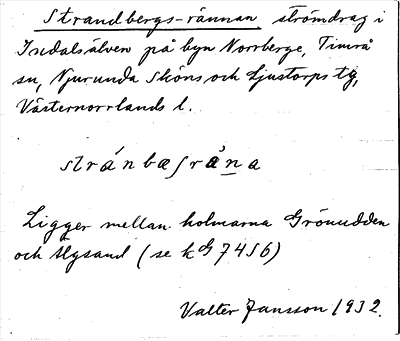 Strandbergs-rännan, strömdrag i
Indalsälven på byn Norrberge, Timrå
sn, Njurunda Sköns och Ljustorps tg,
Västernorrlands l.
stránbæſrȧna
Ligger mellan holmarna Grönudden
och Älgsand (se kG 7456)
Valter Jansson 1932.